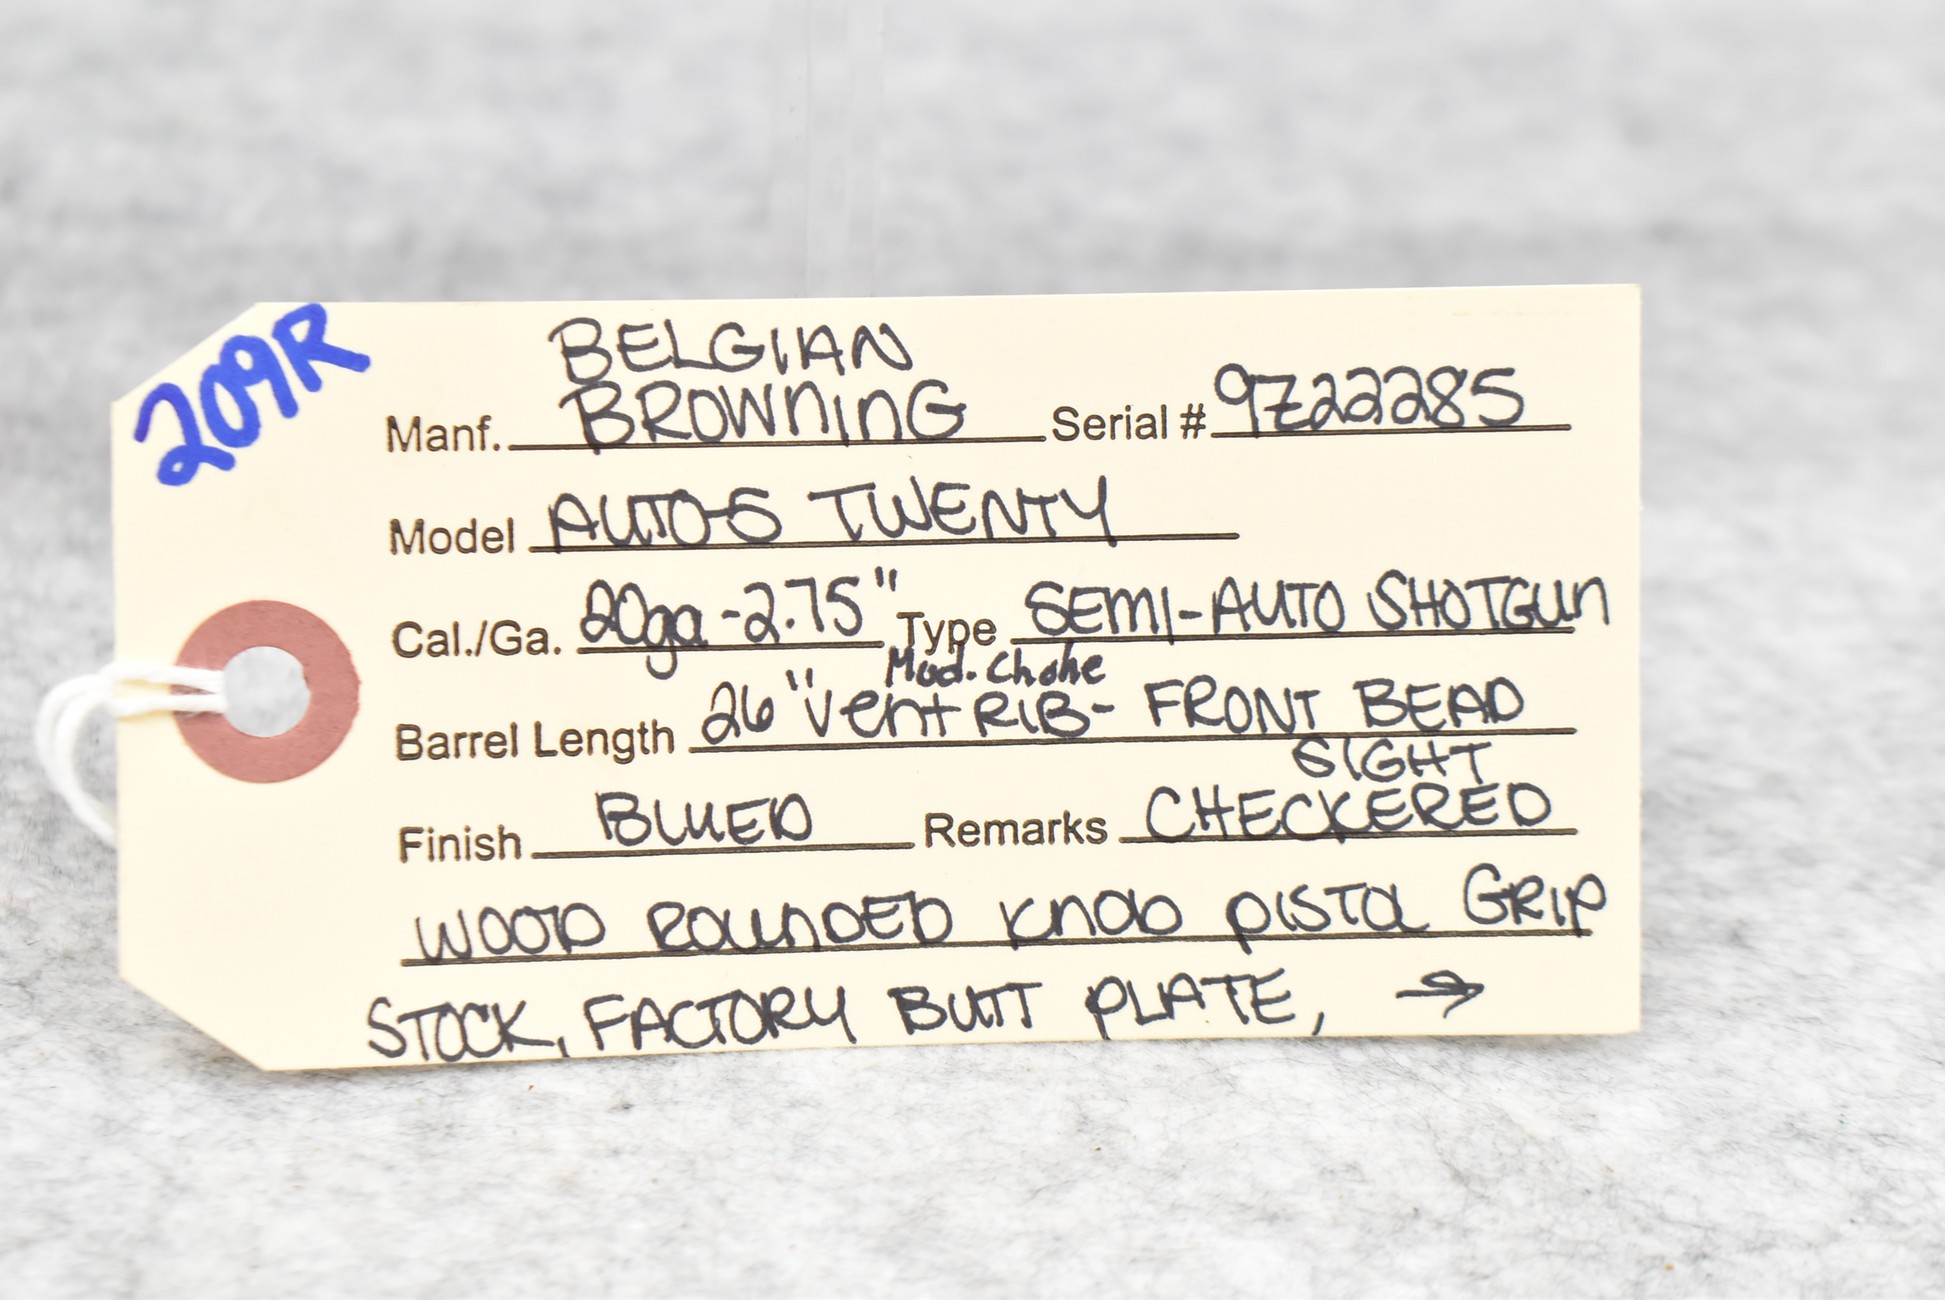 209R
BELGIAN
Manf. BROWNING Serial # 9Z22285
Model AUTO-5 TWENTY
Cal./Ga. 20ga-2.75" Type SEMI-AUTO SHOTGUN
Mod. Choke
Barrel Length 26" Vent RIB- FRONT BEAD
SIGHT
Finish BLUED Remarks CHECKERED
WOOD ROUNDED KNOB PISTOL GRIP
STOCK, FACTORY BUTT PLATE, →